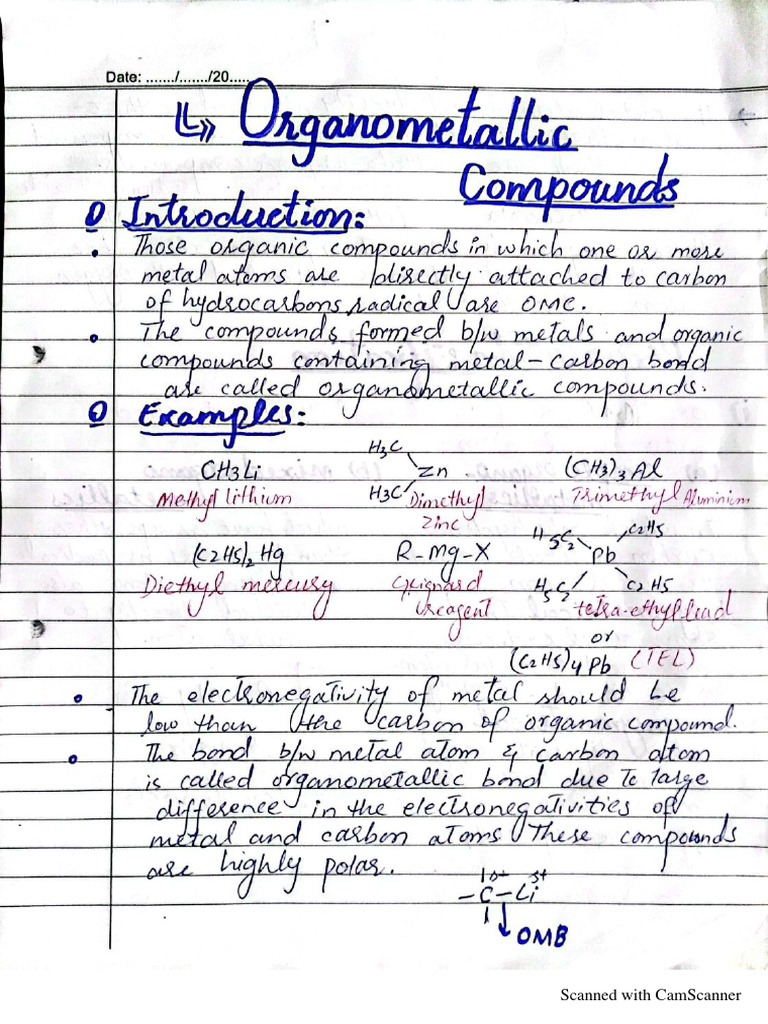 Date: ......./......./20.....
Organometallic
Compounds
Introduction:
Those organic compounds in which one or more
metal atoms are directly attached to carbon
of hydrocarbons radical are OMC.
The compounds formed b/w metals and organic
compounds containing metal-carbon bond
are called organometallic compounds.
Examples:
CH3Li
Methyl lithium
H3C
Zn
H3C
Dimethyl
Zinc
(CH3)3Al
Trimethyl Aluminium
(C2H5)2Hg
Diethyl mercury
R-Mg-X
Grignard
reagent
H5C2 C2H5
Pb
H5C2 C2H5
tetra-ethyl lead
or
(C2H5)4Pb (TEL)
The electronegativity of metal should be
low than the carbon of organic compound.
The bond b/w metal atom & carbon atom
is called organometallic bond due to large
difference in the electronegativities of
metal and carbon atoms These compounds
are highly polar.
-C-Li
OMB
Scanned with CamScanner